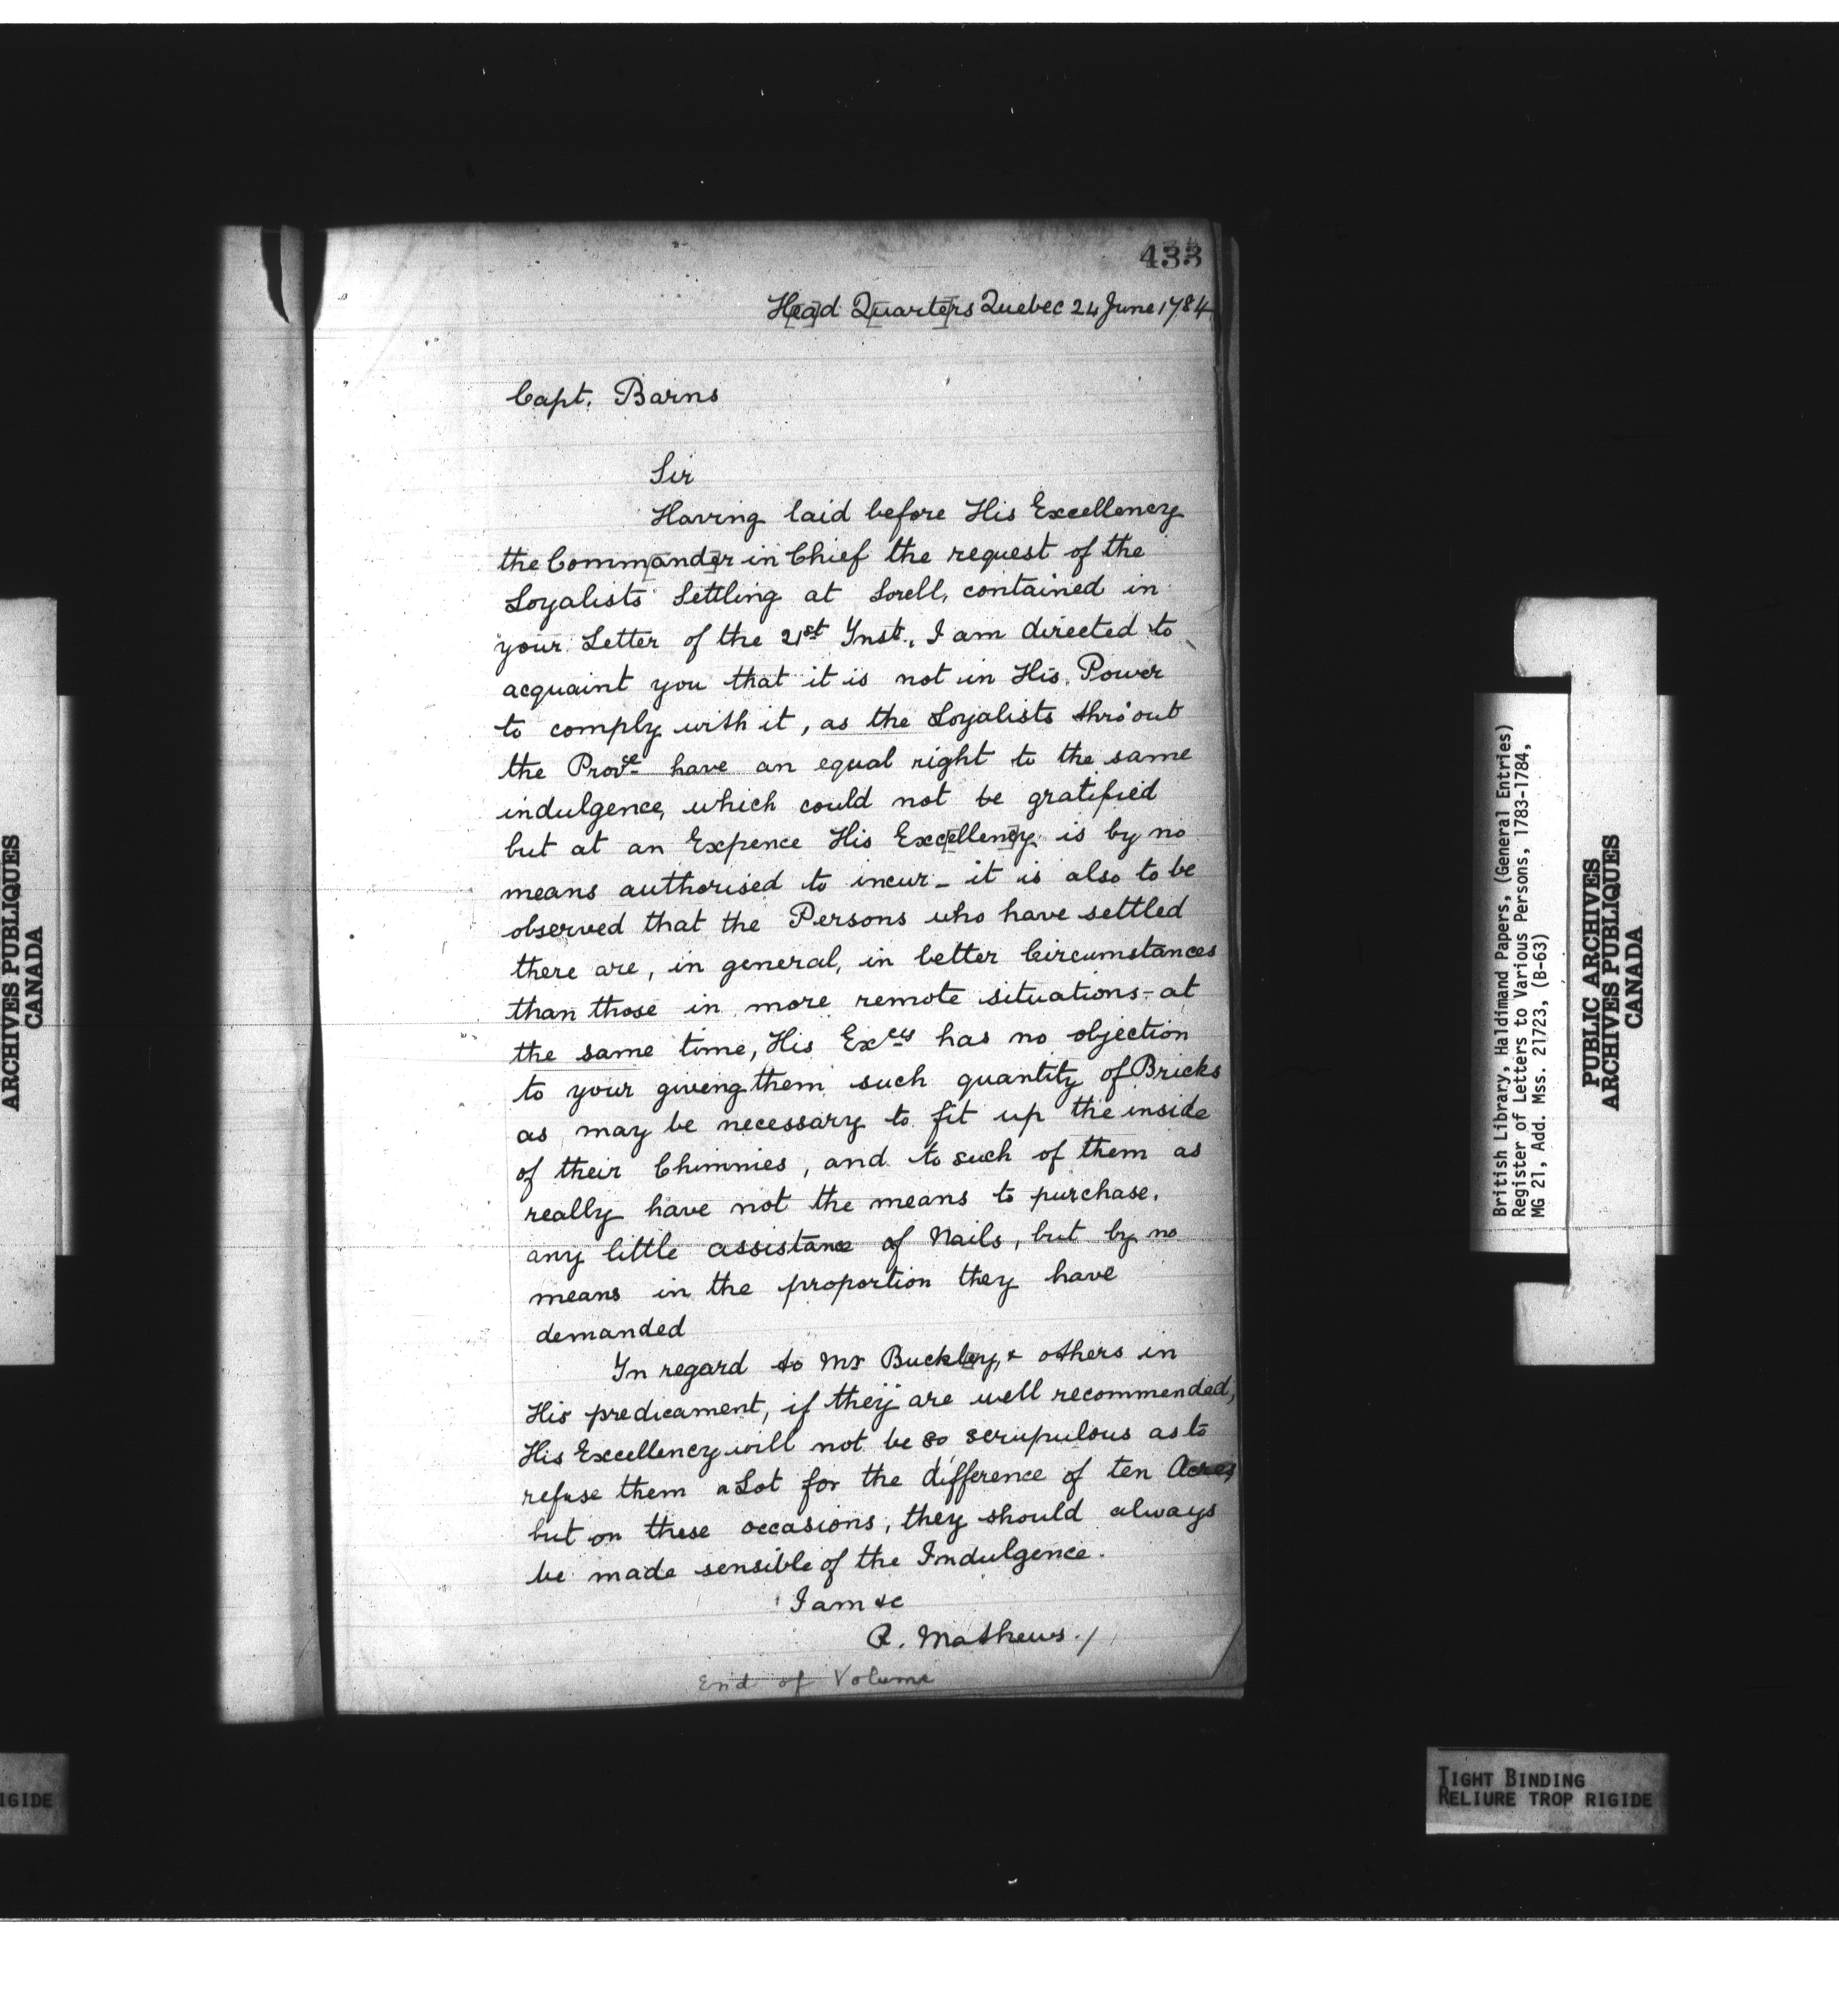 433
H[ea]d Q[uarte]rs Quebec 24 June 1784
Capt. Barns
Sir
Having laid before His Excellency
the Comm[ande]r in Chief the request of the
Loyalists Settling at Sorell, contained in
your Letter of the 21st Ynst., I am directed to
acquaint you that it is not in His Power
to comply with it, as the Loyalists thro'out
the Provce have an equal right to the same
indulgence, which could not be gratified
but at an Expence His Exc[ellenc]y is by no
means authorised to incur - it is also to be
observed that the Persons who have settled
there are, in general, in better Circumstances
than those in more remote situations - at
the same time, His Excy has no objection
to your giving them such quantity of Bricks
as may be necessary to fit up the inside
of their Chimnies, and to such of them as
really have not the means to purchase,
any little assistance of Nails, but by no
means in the proportion they have
demanded
In regard to Mr Buckley, & others in
His predicament, if they are well recommended,
His Excellency will not be so scrupulous as to
refuse them a Lot for the difference of ten Acres,
but on these occasions, they should always
be made sensible of the Indulgence.
I am &c
R. Mathews. /
End of Volume
British Library, Haldimand Papers, (General Entries)
Register of Letters to Various Persons, 1783-1784,
MG 21, Add. Mss. 21723, (B-63)
PUBLIC ARCHIVES
ARCHIVES PUBLIQUES
CANADA
TIGHT BINDING
RELIURE TROP RIGIDE
ARCHIVES PUBLIQUES
CANADA
IGIDE